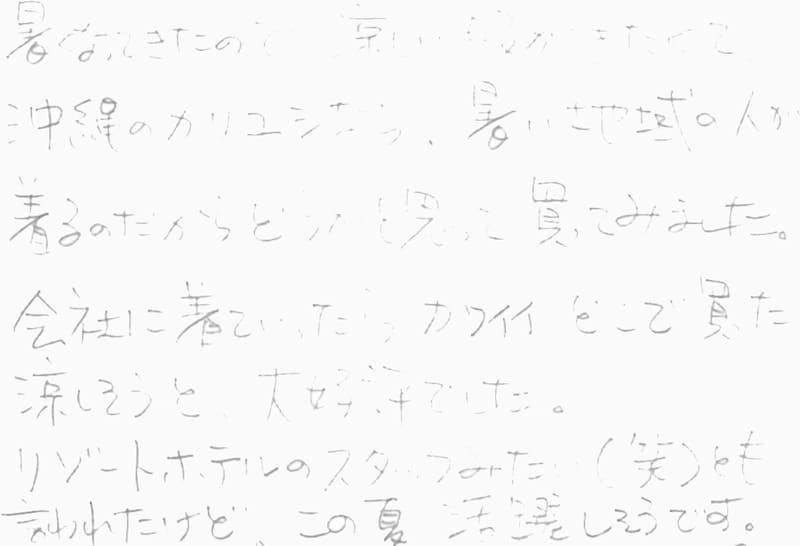 暑くなってきたので、涼しい服がきたくて、
沖縄のカリユシなら、暑い地域の人が
着るのだからどうかと思って買ってみました。
会社に着ていったらカワイイ どこで買った
涼しそうと、大好評でした。
リゾートホテルのスタッフみたい(笑)とも
言われたけど、この夏 活躍しそうです。